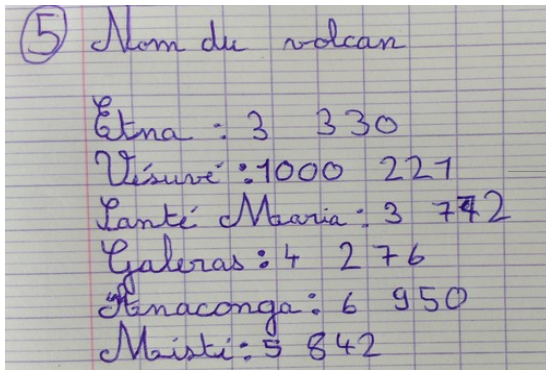 5 Nom du volcan
Etna : 3 330
Vésuvé : 1000 221
Santé Maaria : 3 742
Galeras : 4 276
Anaconga : 6 950
Misti : 5 842